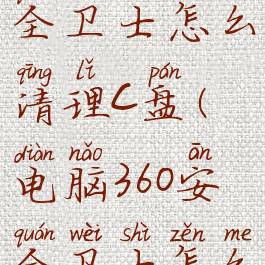 全卫士怎么
qīng lǐ pán
清理C盘(
diàn nǎo ān
电脑360安
quán wèi shì zěn me
全卫士怎么